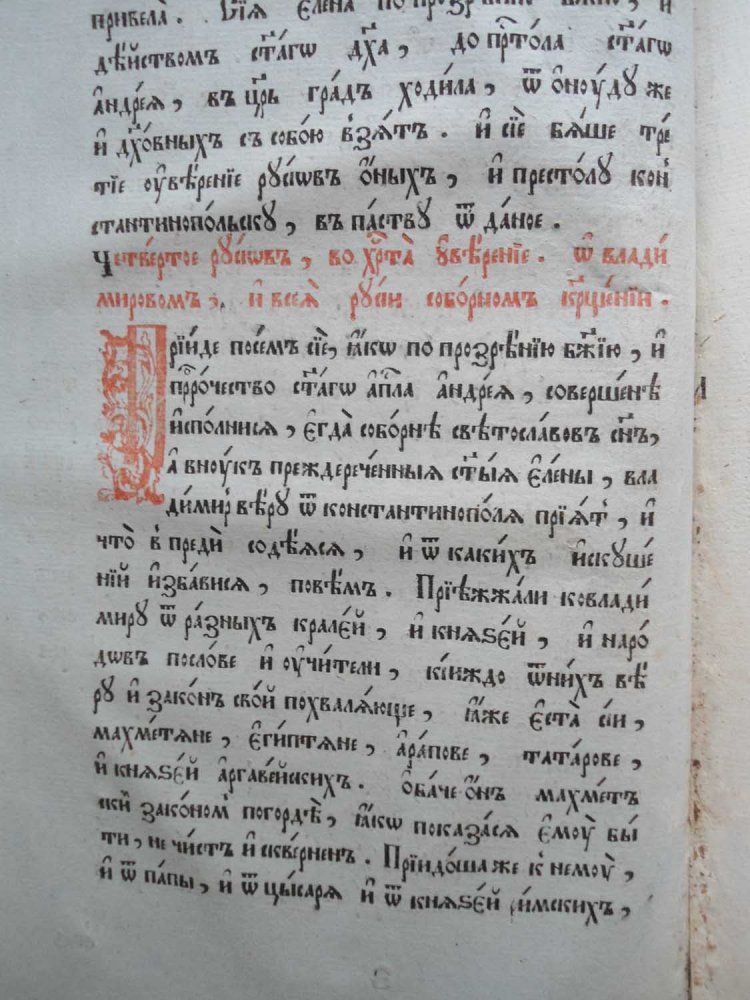 привела̀. Сїѧ̀ Єле́на по прозрѣ́нию бж҃їю, и҆
дѣ́йствомъ ст҃а́гѡ дх҃а, до прⷭ҇то́ла ст҃а́гѡ
а҆ндре́ѧ, въ цр҃ь гра́дъ ходи́ла, ѿ ѻ҆ноу́дꙋ же
и҆ дх҃о́вныхъ съ собо́ю взѧ́тъ. и҆ сїѐ бѧ́ше тре́
тїе оу҆вѣре́нїе рꙋ́сѡвъ ѻ҆́ныхъ, и҆ престо́лꙋ кон
стантинопо́льскꙋ, въ па́ствꙋ ѿ да́ное.
Четве́ртое рꙋ́сѡвъ, во хрⷭ҇та̀ ᲂу҆вѣ́ренїе. ѡ҆ влади́
мировомъ, и҆ всеѧ̀ рꙋси собо́рномъ кр҃ще́нїи.
Прїи́де посе́мъ сїѐ, ꙗ҆́кѡ по прозрѣ́нїю бж҃їю, и҆
прⷪ҇ро́чество ст҃а́гѡ а҆пⷭ҇ла а҆ндре́ѧ, соверше́нѣ
и҆спо́лнисѧ, є҆гда̀ собо́рнѣ свѣтосла́вовъ сн҃ъ,
а҆ вноу́къ преждерече́нныѧ ст҃ы́ѧ є҆ле́ны, вла
ди́миръ вѣ́рꙋ ѿ константинопо́лѧ прїѧ́тъ, и҆
что̀ в̾предѝ содѣ́ѧсѧ, и҆ ѿ каки́хъ и҆скꙋше́
нїй и҆зба́висѧ, повѣ́мъ. Прїѣжжа́ли ковлади́
мирꙋ ѿ ра́зныхъ крале́й, и҆ кнѧѕе́й, и҆ наро́
дѡвъ посло́ве и҆ оу҆чи́тели, кі́иждо ѿни́хъ вѣ́
рꙋ и҆ зако́нъ сво́й похвалѧ́юще, ꙗ҆́же є҆ста̀ сі́и,
махме́тѧне, є҆ги́птѧне, а҆ра́пове, тата́рове,
и҆ кнѧѕе́й аргаве́йскихъ. Ѻ҆ба́че ѻ҆́нъ махме́тъ
ски́ зако́номъ погордѣ̀, ꙗ҆́кѡ показа́сѧ є҆моу̀ бы́
ти, не чи́стъ и҆ скве́рненъ. Прїидо́ша же к̾ немоу̀,
и҆ ѿ па́пы, и҆ ѿ цы́сарѧ и҆ ѿ кнѧѕе́й ри́мскихъ,